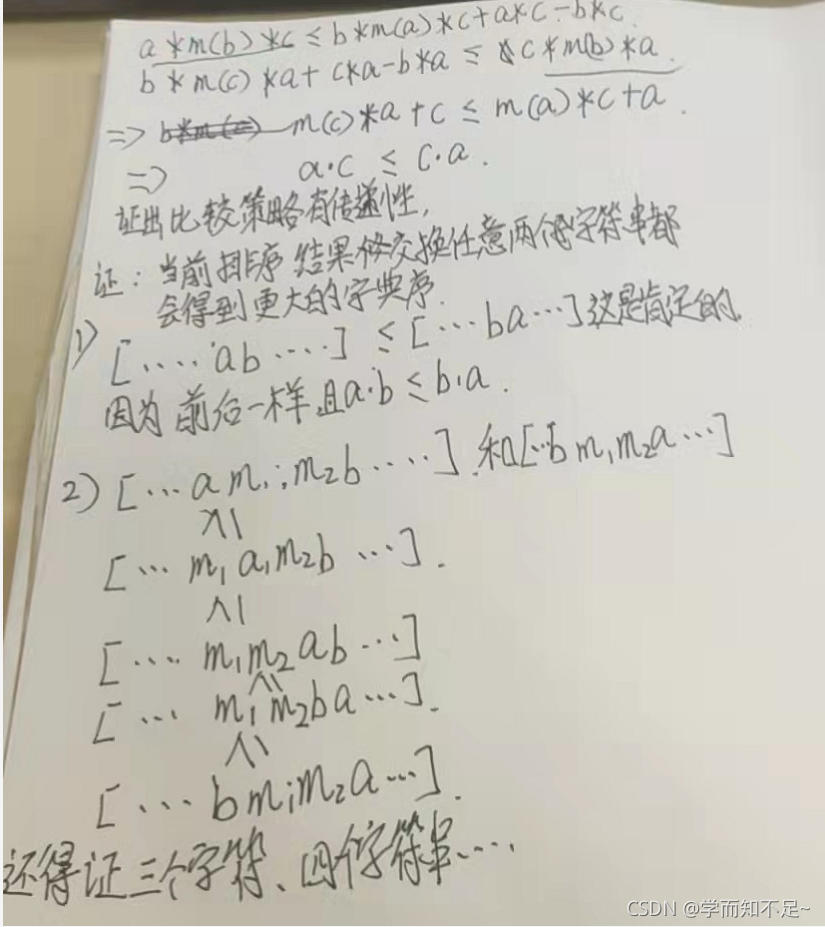 a * m(b) * c ≤ b * m(a) * c + a * c - b * c.
b * m(c) * a + c * a - b * a ≤ c * m(b) * a.
=> m(c) * a + c ≤ m(a) * c + a.
=> a·c ≤ c·a.
证出比较策略有传递性,
证:当前排序结果 交换任意两个字符串都
会得到更大的字典序.
1) [····ab····] ≤ [···ba···]这是肯定的.
因为 前后一样,且a·b ≤ b·a.
2) [···a m₁,m₂b····].和[··b m₁m₂a···]
≤
[··· m₁a,m₂b ···].
≤
[··· m₁m₂ab···]
≤
[··· m₁m₂ba···].
≤
[···bm₁m₂a···].
还得证三个字符、四个字符串....
CSDN @学而知不足~